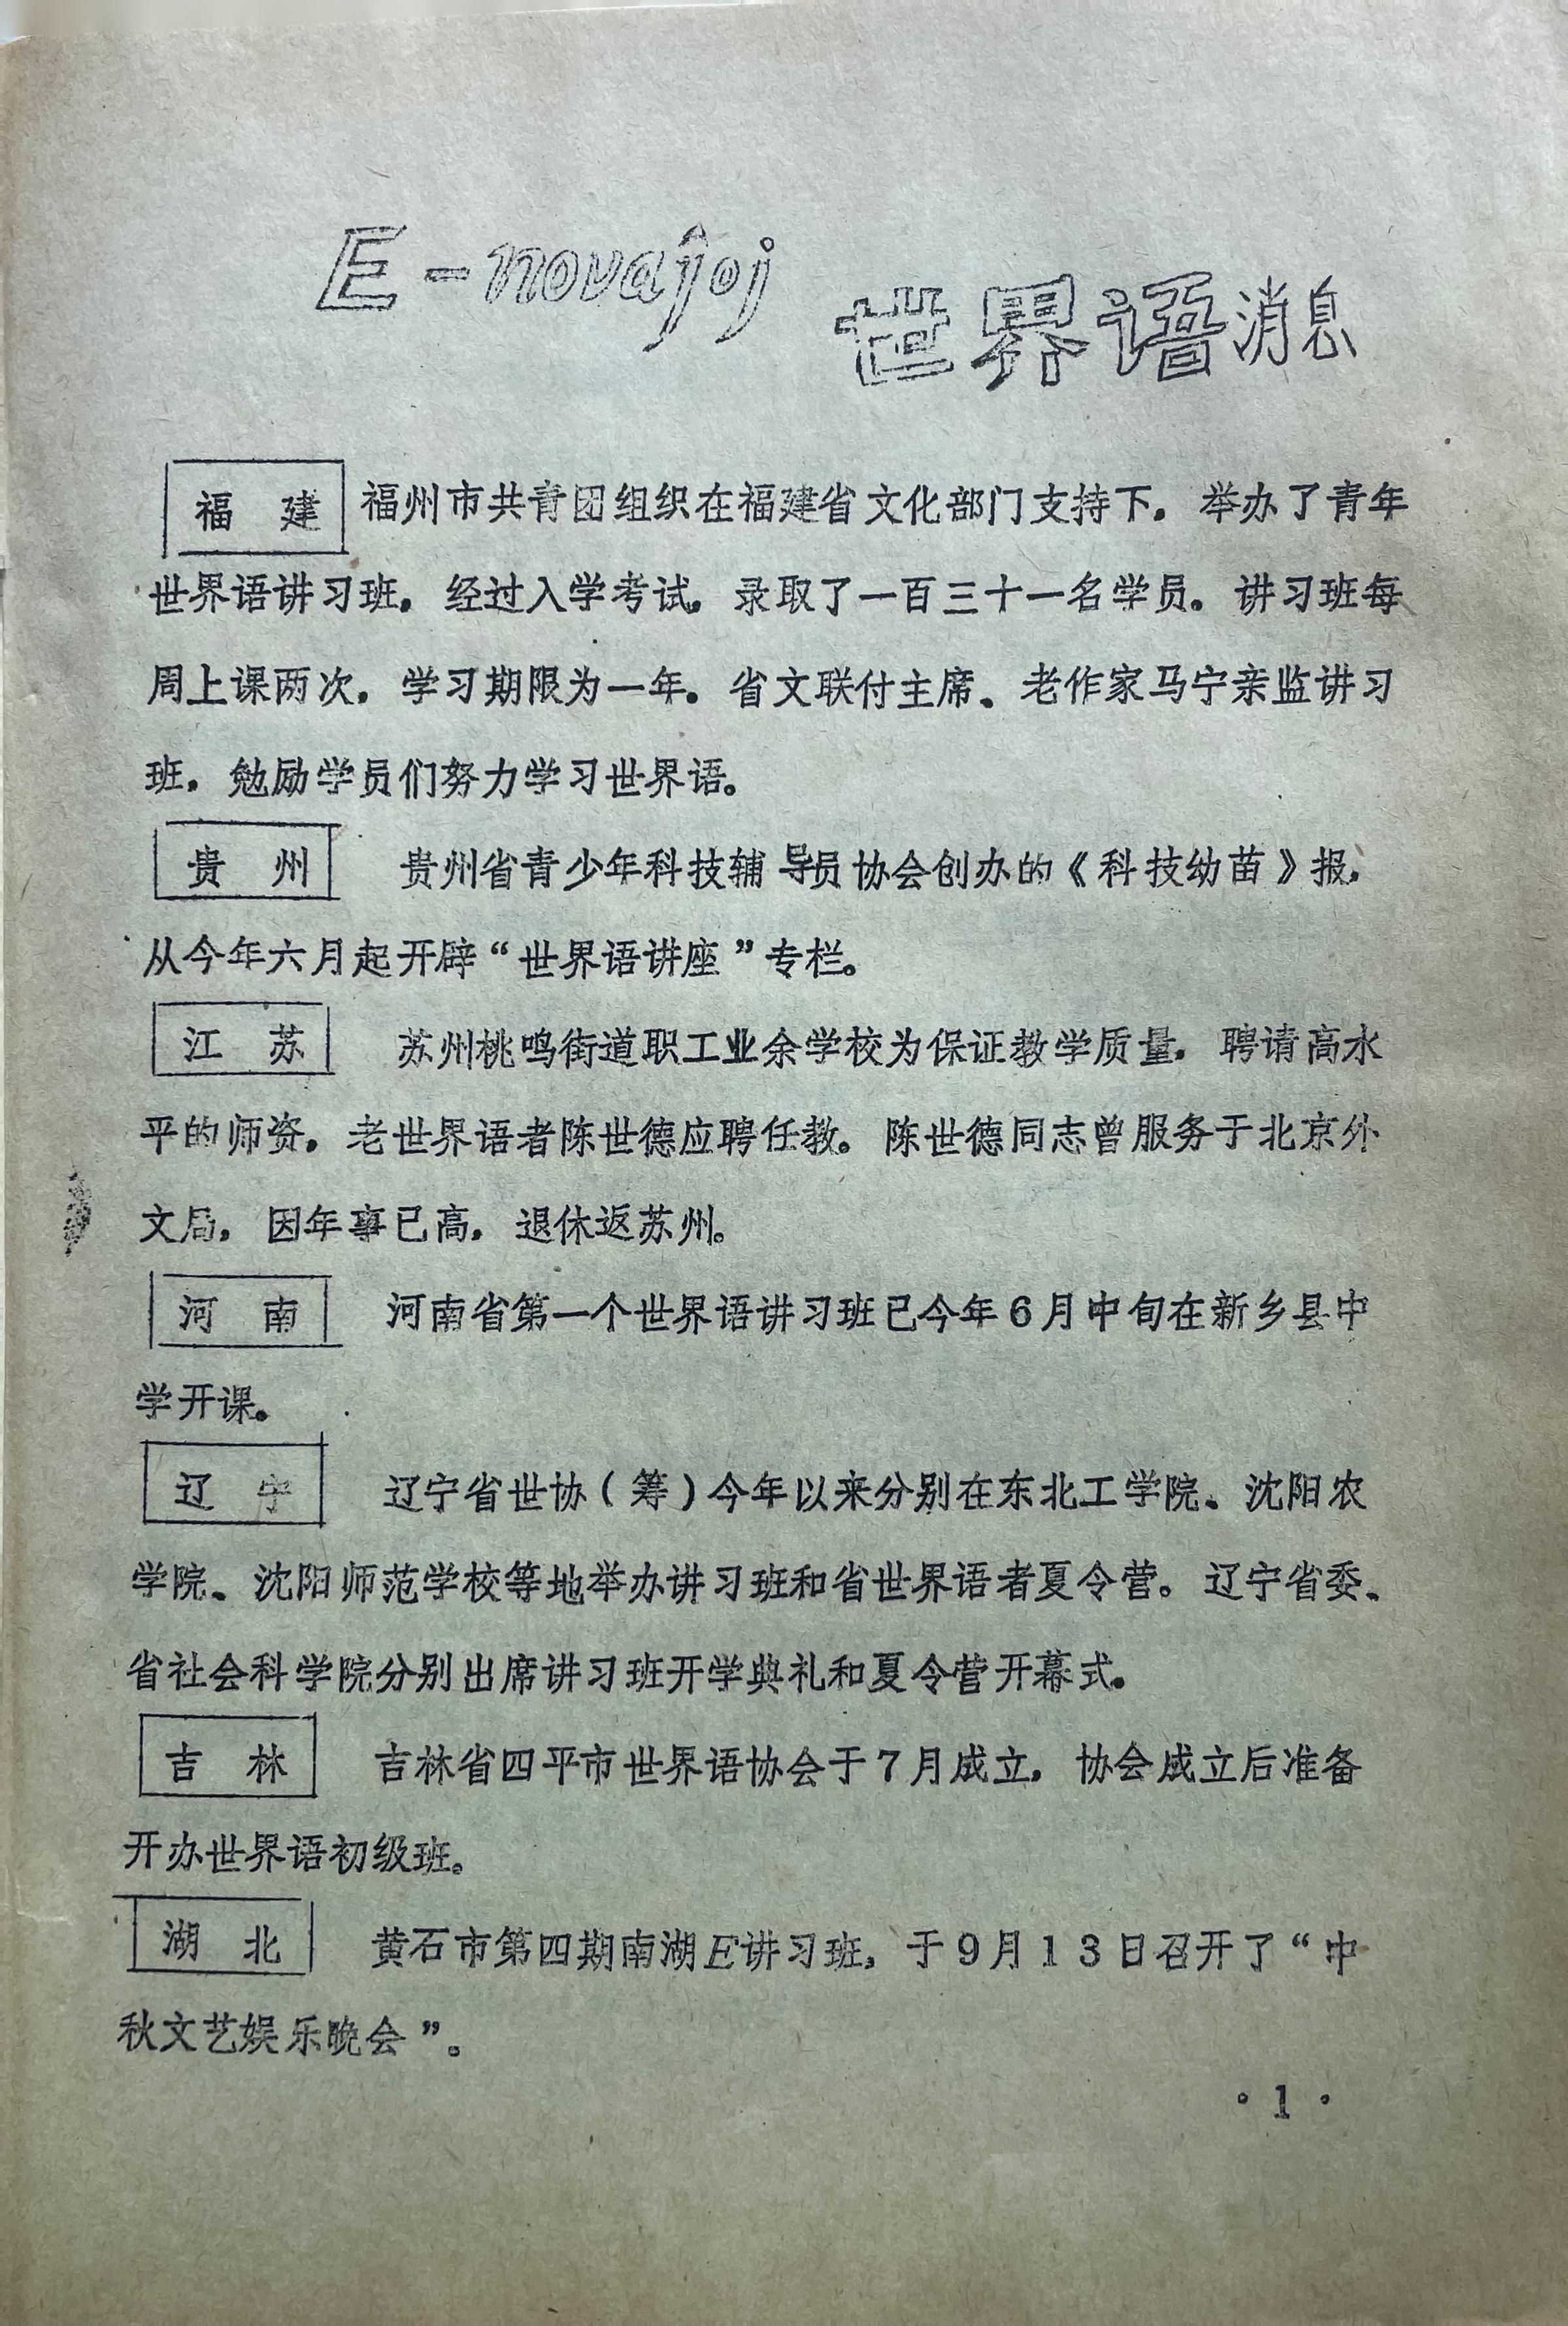 E-novaĵoj
世界语消息
福 建 福州市共青团组织在福建省文化部门支持下，举办了青年
世界语讲习班，经过入学考试，录取了一百三十一名学员。讲习班每
周上课两次，学习期限为一年。省文联付主席、老作家马宁亲监讲习
班，勉励学员们努力学习世界语。
贵 州 贵州省青少年科技辅导员协会创办的《科技幼苗》报，
从今年六月起开辟“世界语讲座”专栏。
江 苏 苏州桃鸣街道职工业余学校为保证教学质量，聘请高水
平的师资，老世界语者陈世德应聘任教。陈世德同志曾服务于北京外
文局，因年事已高，退休返苏州。
河 南 河南省第一个世界语讲习班已今年6月中旬在新乡县中
学开课。
辽 宁 辽宁省世协（筹）今年以来分别在东北工学院、沈阳农
学院、沈阳师范学校等地举办讲习班和省世界语者夏令营。辽宁省委、
省社会科学院分别出席讲习班开学典礼和夏令营开幕式。
吉 林 吉林省四平市世界语协会于7月成立，协会成立后准备
开办世界语初级班。
湖 北 黄石市第四期南湖E讲习班，于9月13日召开了“中
秋文艺娱乐晚会”。
·1·